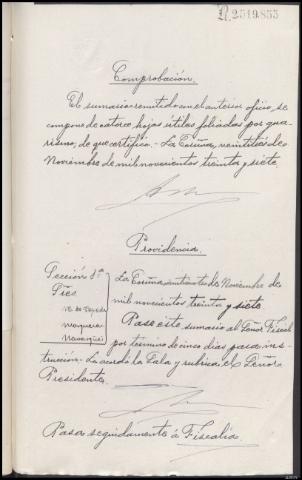 R.2519.855
Comprobación.
El sumario remitido con el anterior oficio, se
compone de catorce hojas útiles foliadas por gua-
rismo, de que certifico. La Coruña, veintitres de
Noviembre de mil novecientos treinta y siete.
Providencia.
Sección 1ª
Sres
maquera
La Coruña de Noviembre de
mil novecientos treinta y siete
Pase este sumario al Señor Fiscal
por termino de cinco dias para ins-
trucción. Lo acordó la Sala y rubrica el Señor
Presidente.
Pasa seguidamente á Fiscalia.